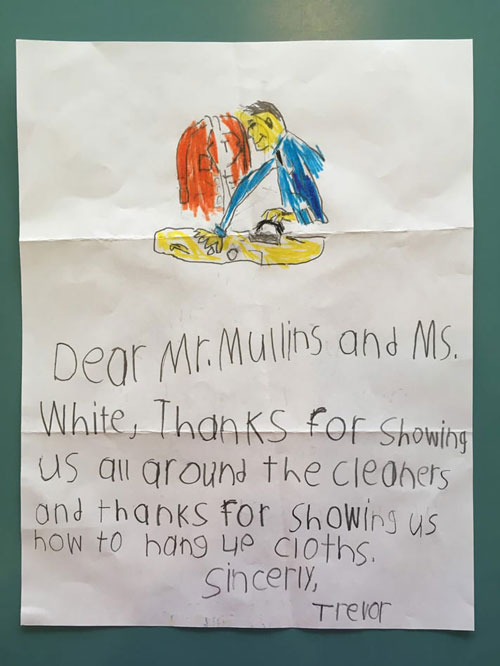 Dear Mr. Mullins and Ms.
White, Thanks for showing
us all around the cleaners
and thanks for showing us
how to hang up cloths.
Sincerly,
Trevor